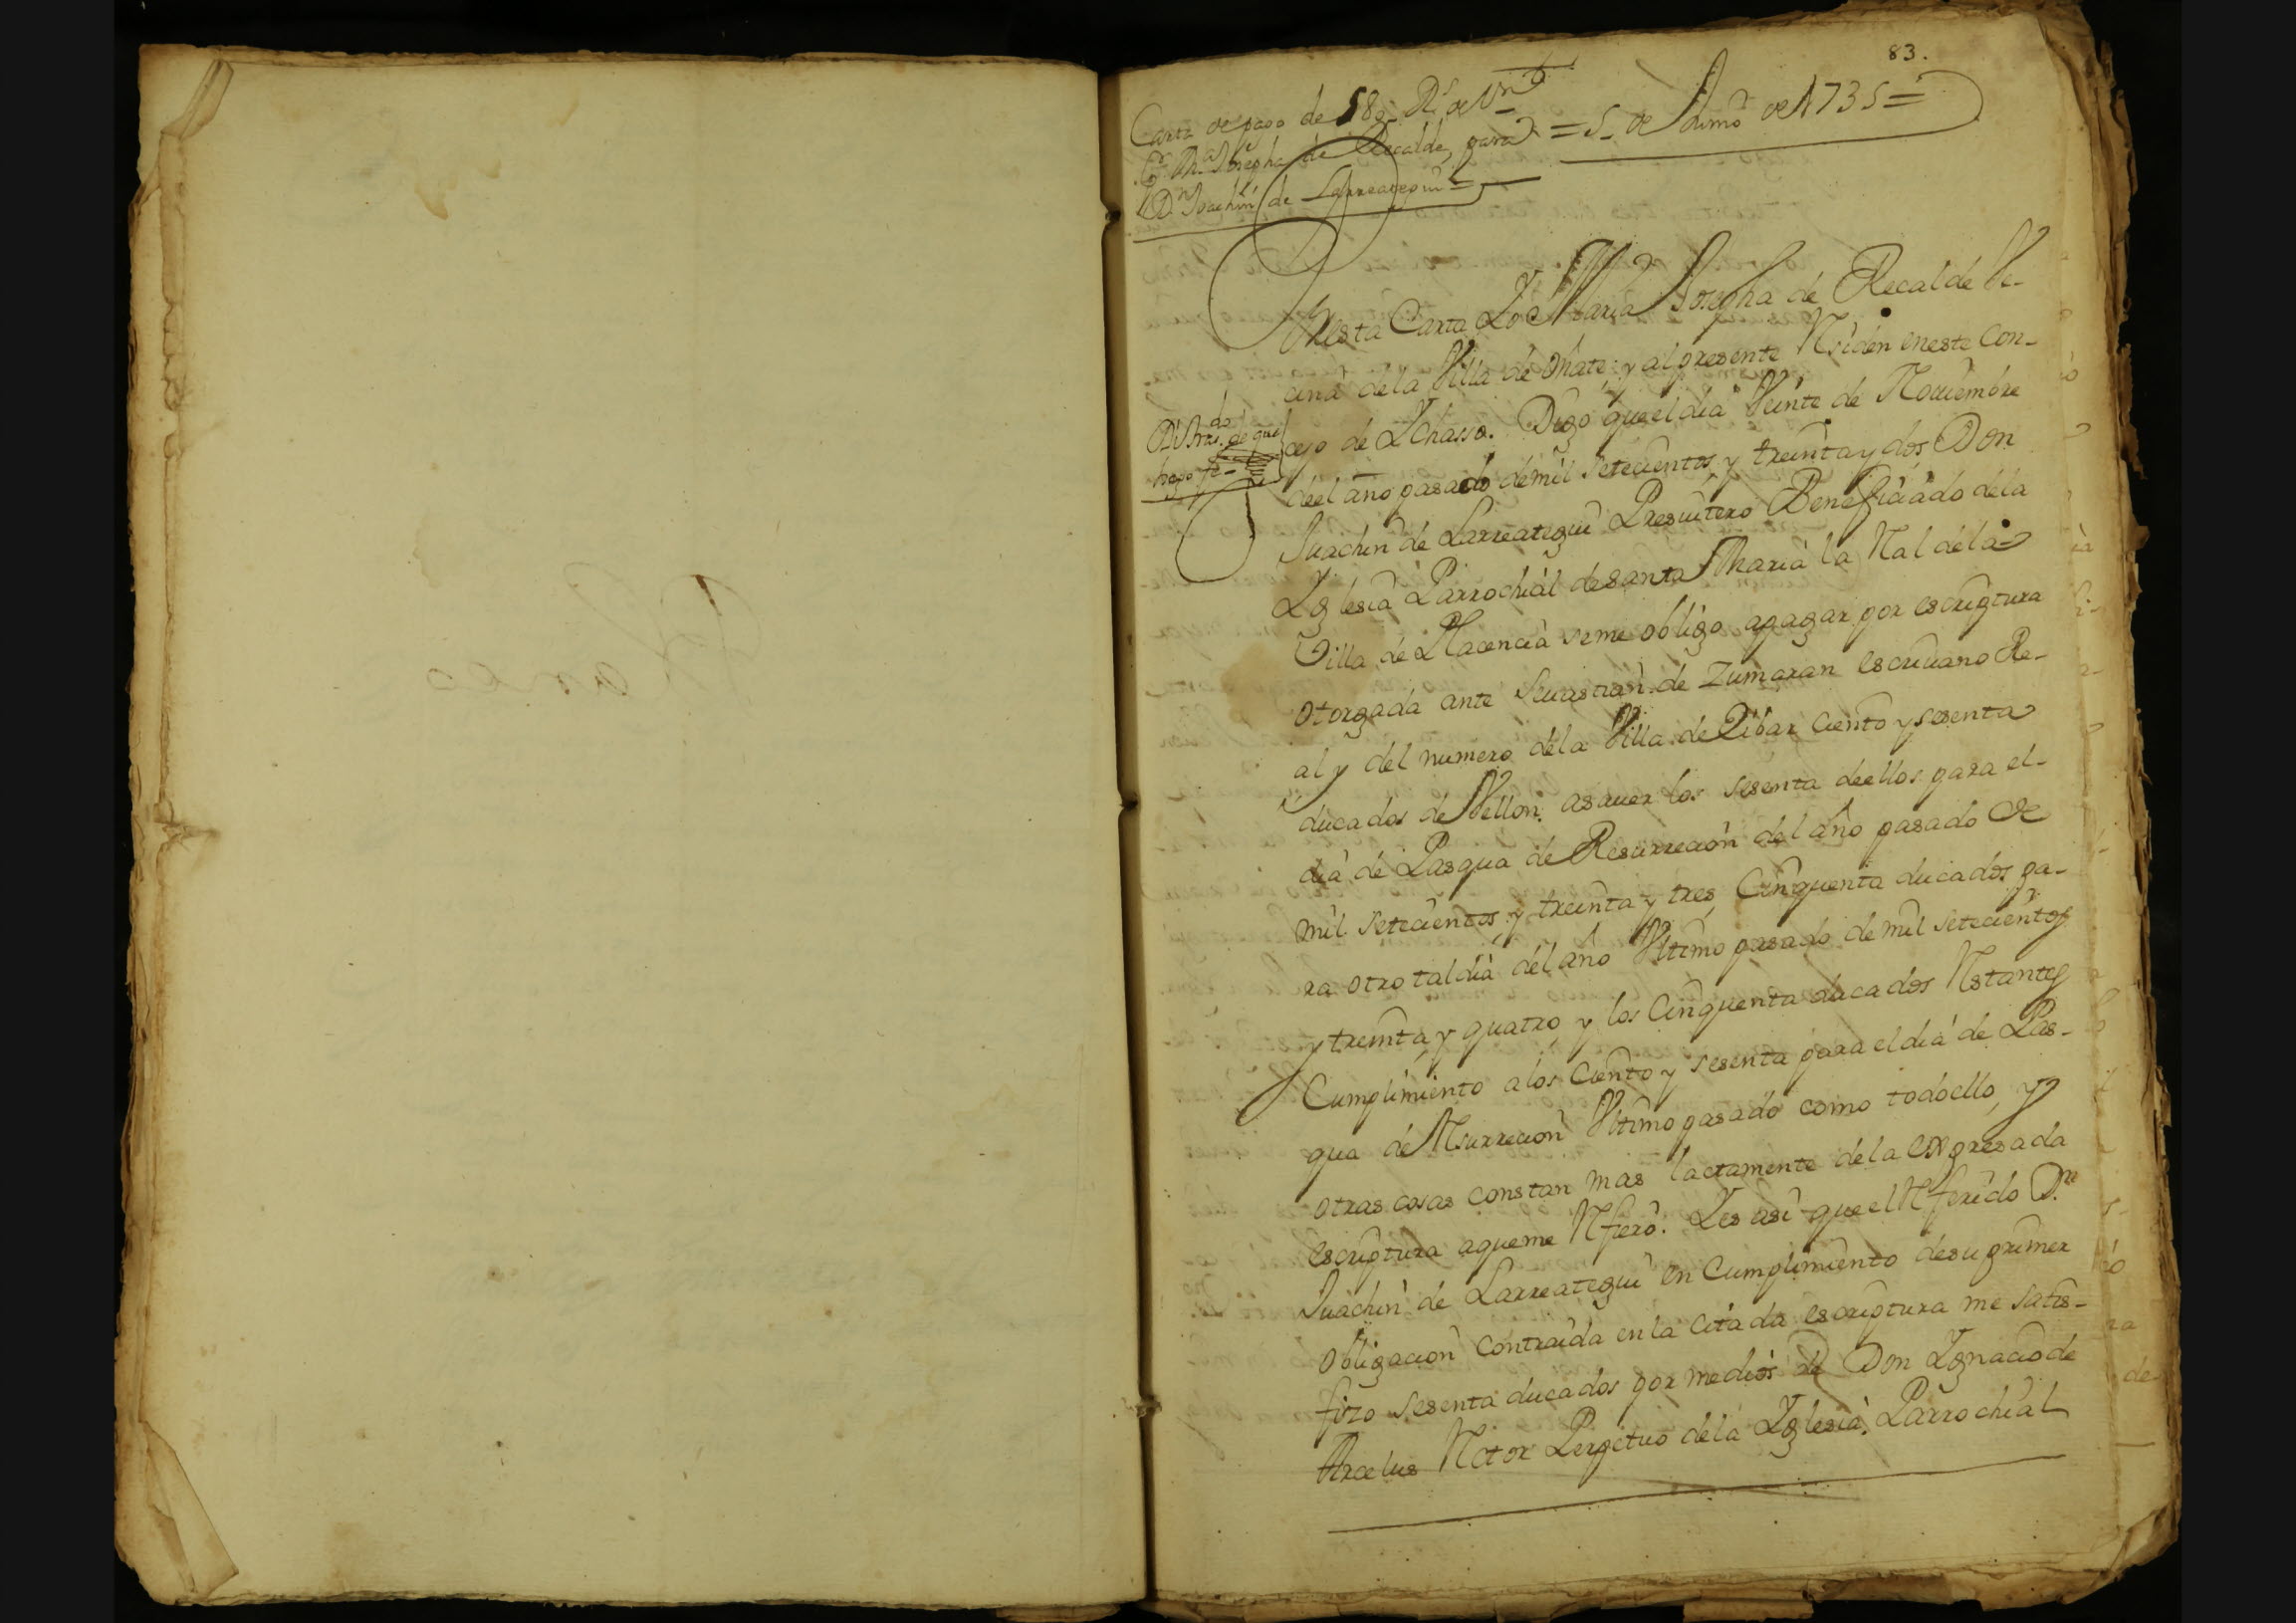 83.
Carta de pago de 589 Rs. de Vn.
Por Ma. Josepha de Recalde, para = 5 de Junio de 1735 =
Dn. Joachin de Larreategui =
En esta Carta Yo Maria Josepha de Recalde Ve-
cina dela Villa de Oñate y al presente Residen eneste Con-
cejo de Ychasso. Digo que el dia Veinte de Noviembre
deel año pasado demil setecientos y treinta y dos Don
Juachin de Larreategui Presuitero Beneficiado dela
Yglesia Parrochial de Santa Maria la Real dela
Villa de Placencia seme obligo apagar por escriptura
otorgada ante Sevastian de Zumaran escriuano Re-
al y del numero dela Villa de Eibar Ciento y sesenta
ducados de Vellon. asauer los sesenta deellos para el
dia de Pasqua de Resurrecion del año pasado de
mil setecientos y treinta y tres Cinquenta ducados pa-
ra otro tal dia del año Vltimo pasado de mil setecientos
y treinta y quatro y los Cinquenta ducados Restantes
Cumplimiento alos Ciento y sesenta para el dia de Pas-
qua de Resurrecion Vltimo pasado como todo ello, y
otras cosas constan mas lactamente dela expresada
escriptura aqueme Refiero. Y es asi que el Referido Dn.
Juachin de Larreategui en Cumplimiento desu primer
obligacion Contraida en la Citada escriptura me satis-
fizo sesenta ducados por medios de Don Ygnacio de
Arcelus Retor Perpetuo dela Yglesia Parrochial
de que
hago fe
Blanco